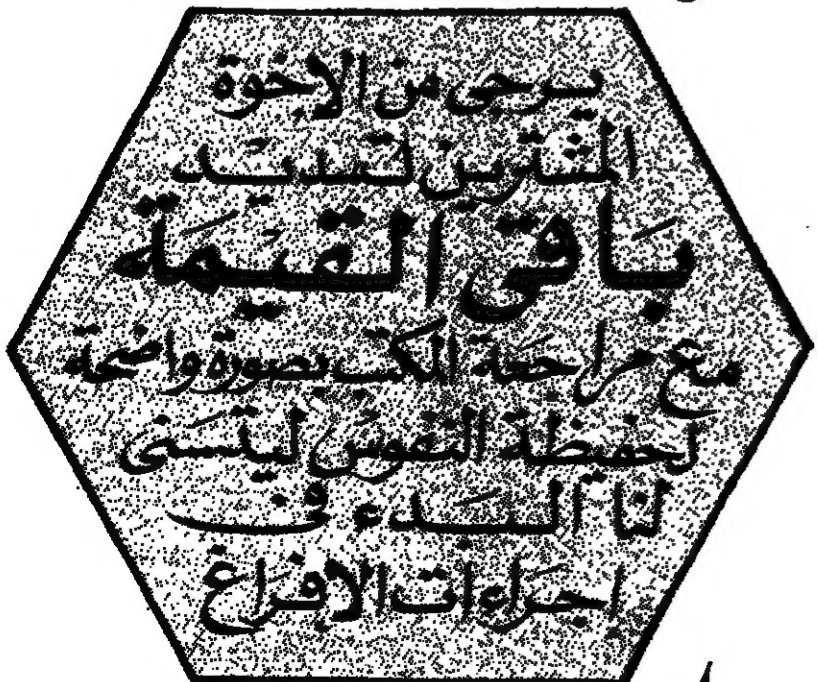 يرجى من الإخوة
المشترين تسديد
باقي القيمة
مع مراجعة المكتب بصورة واضحة
لحفيظة النفوس ليتسنى
لنا البدء في
إجراءات الإفراغ